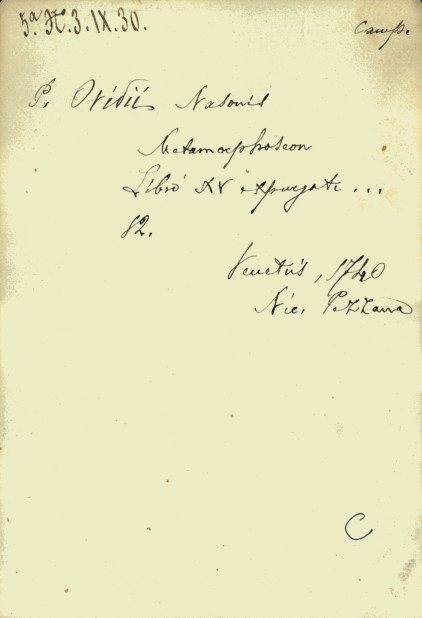 5ª H.3.IX.30.
Camp.
P. Ovidii Nasonis
Metamorphoseon
Libri XV expurgati ...
82.
Venetiis, 1740
Nic. Pezzana
C